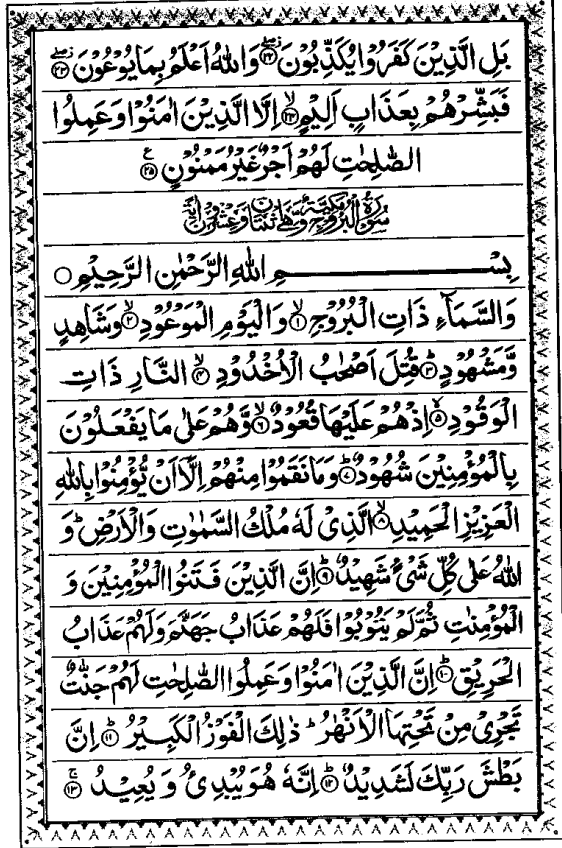 بَلِ الَّذِيْنَ كَفَرُوْا يُكَذِّبُوْنَ ۝۲۲ وَاللّٰهُ اَعْلَمُ بِمَا يُوْعُوْنَ ۝۲۳
فَبَشِّرْهُمْ بِعَذَابٍ اَلِيْمٍ ۝۲۴ اِلَّا الَّذِيْنَ اٰمَنُوْا وَعَمِلُوا
الصّٰلِحٰتِ لَهُمْ اَجْرٌ غَيْرُ مَمْنُوْنٍ ۝۲۵
سُوْرَةُ الْبُرُوْجِ مَكِّيَّةٌ وَّهِيَ اثْنَتَانِ وَعِشْرُوْنَ اٰيَةً
بِسْمِ اللّٰهِ الرَّحْمٰنِ الرَّحِيْمِ ○
وَالسَّمَآءِ ذَاتِ الْبُرُوْجِ ۝۱ وَالْيَوْمِ الْمَوْعُوْدِ ۝۲ وَشَاهِدٍ
وَّمَشْهُوْدٍ ۝۳ قُتِلَ اَصْحٰبُ الْاُخْدُوْدِ ۝۴ النَّارِ ذَاتِ
الْوَقُوْدِ ۝۵ اِذْ هُمْ عَلَيْهَا قُعُوْدٌ ۝۶ وَّهُمْ عَلٰى مَا يَفْعَلُوْنَ
بِالْمُؤْمِنِيْنَ شُهُوْدٌ ۝۷ وَمَا نَقَمُوْا مِنْهُمْ اِلَّاۤ اَنْ يُّؤْمِنُوْا بِاللّٰهِ
الْعَزِيْزِ الْحَمِيْدِ ۝۸ الَّذِيْ لَهٗ مُلْكُ السَّمٰوٰتِ وَالْاَرْضِ ؕ وَ
اللّٰهُ عَلٰى كُلِّ شَيْءٍ شَهِيْدٌ ۝۹ اِنَّ الَّذِيْنَ فَتَنُوا الْمُؤْمِنِيْنَ وَ
الْمُؤْمِنٰتِ ثُمَّ لَمْ يَتُوْبُوْا فَلَهُمْ عَذَابُ جَهَنَّمَ وَلَهُمْ عَذَابُ
الْحَرِيْقِ ۝۱۰ اِنَّ الَّذِيْنَ اٰمَنُوْا وَعَمِلُوا الصّٰلِحٰتِ لَهُمْ جَنّٰتٌ
تَجْرِيْ مِنْ تَحْتِهَا الْاَنْهٰرُ ؕ ذٰلِكَ الْفَوْزُ الْكَبِيْرُ ۝۱۱ اِنَّ
بَطْشَ رَبِّكَ لَشَدِيْدٌ ۝۱۲ اِنَّهٗ هُوَ يُبْدِئُ وَ يُعِيْدُ ۝۱۳